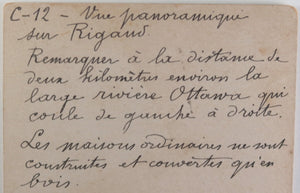 C-12 - Vue panoramique
sur Rigaud
Remarquer à la distance de
deux kilomètres environ la
large rivière Ottawa qui
coule de gauche à droite.
Les maisons ordinaires ne sont
construites et couvertes qu'en
bois.